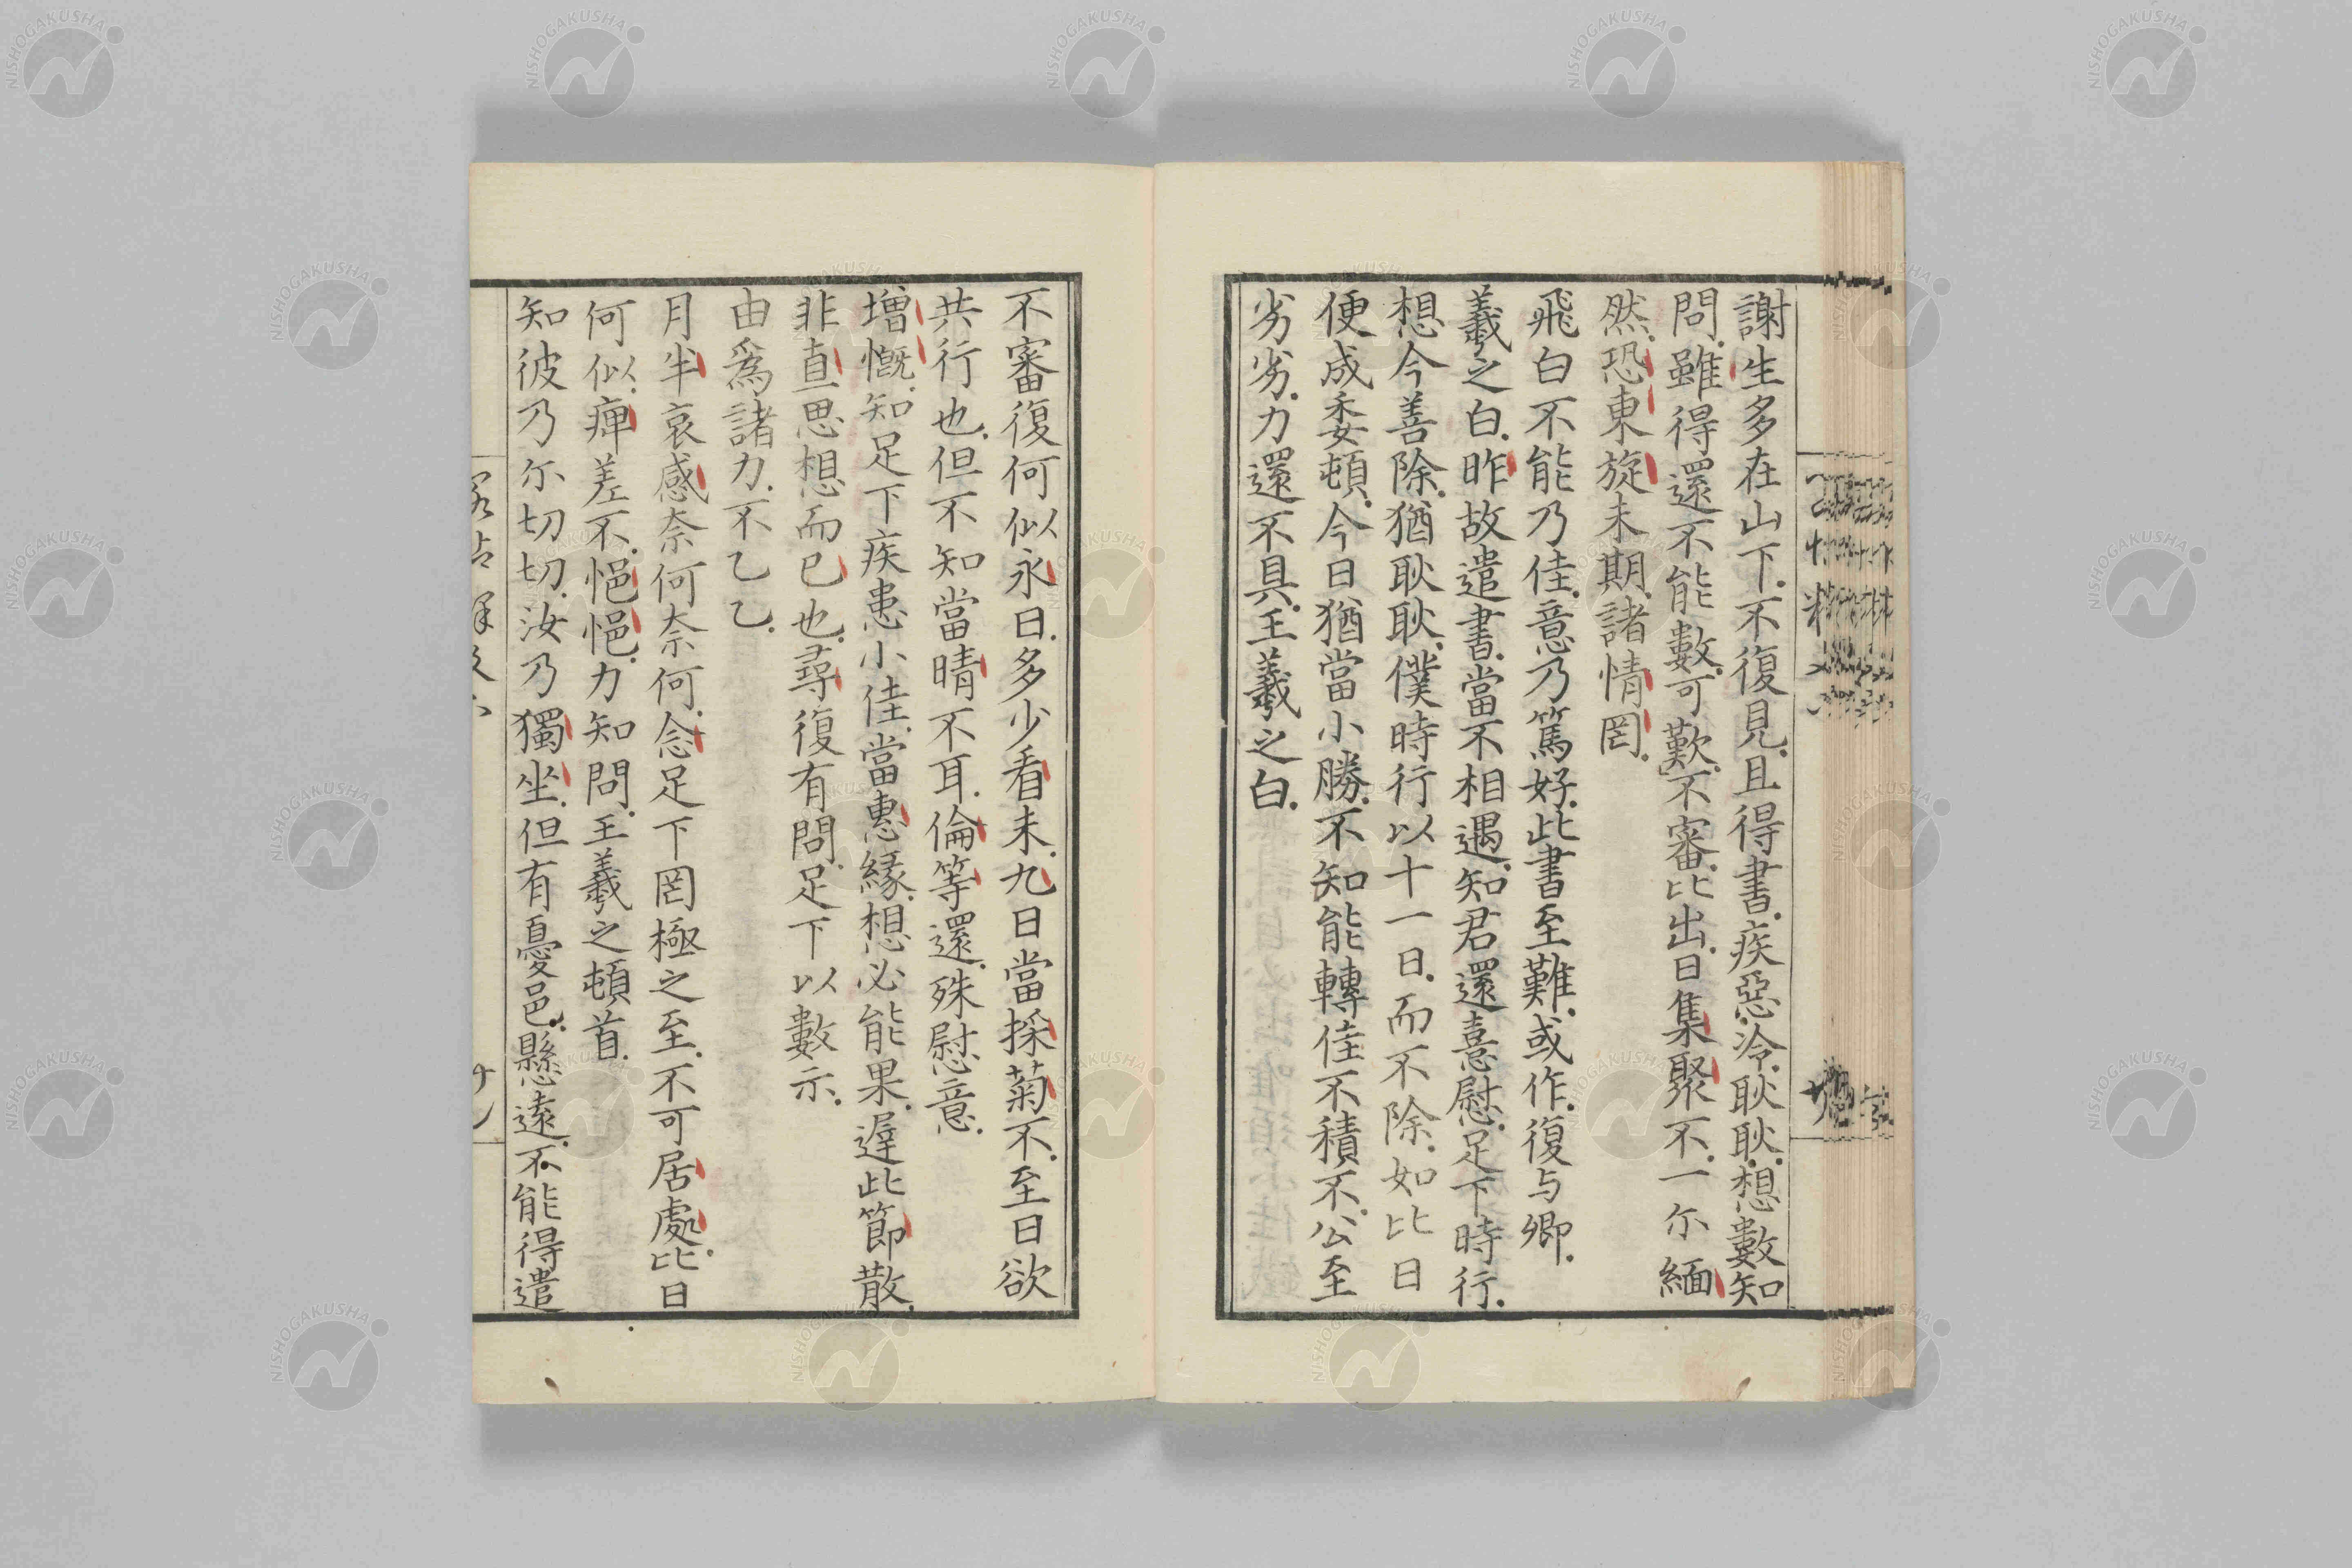 謝生多在山下.不復見.且得書.疾惡.冷.耿耿.想數知
問.雖得還不能數.可歎.不審.比出.日集聚不.一尓緬
然.恐東旋未期.諸情罔.
飛白不能乃佳.意乃篤好.此書至難.或作.復与卿.
羲之白.昨故遣書.當不相遇.知君還憙慰.足下時行.
想今善除.猶耿耿.僕時行以十一日.而不除.如比日
便成委頓.今日猶當小勝.不知能轉佳不積不.公至
劣劣.力還不具.王羲之白.
不審復何似永日.多少看未.九日當採菊不.至日欲
共行也.但不知當晴不耳.倫等還.殊慰意.
増慨.知足下疾患小佳.當惠緣.想必能果.遅此節散.
非直思想而已也.尋復有問.足下以數示.
由爲諸力.不乙乙.
月半哀感奈何奈何.念足下罔極之至.不可居處.比日
何似.痺差不.悒悒.力知問.王羲之頓首.
知彼乃尓切切.汝乃獨坐.但有憂邑.懸遠.不能得遣
NISHOGAKUSHA